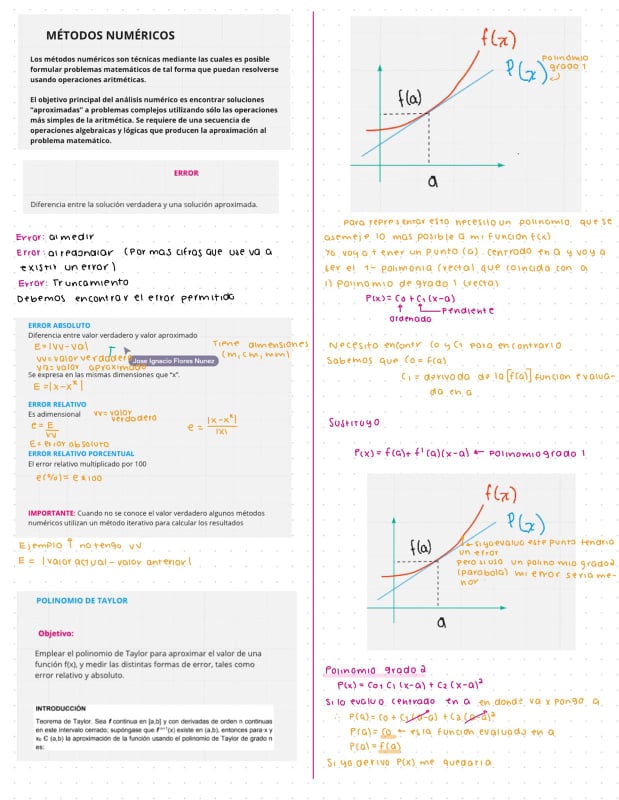 MÉTODOS NUMÉRICOS
Los métodos numéricos son técnicas mediante las cuales es posible
formular problemas matemáticos de tal forma que puedan resolverse
usando operaciones aritméticas.
El objetivo principal del análisis numérico es encontrar soluciones
"aproximadas" a problemas complejos utilizando sólo las operaciones
más simples de la aritmética. Se requiere de una secuencia de
operaciones algebraicas y lógicas que producen la aproximación al
problema matemático.
ERROR
Diferencia entre la solución verdadera y una solución aproximada.
Error: al medir
Error: al redondear (Por mas cifras que use va a
existir un error)
Error: Truncamiento
Debemos encontrar el error permitido
ERROR ABSOLUTO
Diferencia entre valor verdadero y valor aproximado
E=|vv-va|
Tiene dimensiones
(m, cm, mm)
vv=valor verdadero
Jose Ignacio Flores Nunez
va=valor aproximado
Se expresa en las mismas dimensiones que "x".
E=|x-x*|
ERROR RELATIVO
Es adimensional
vv=valor
verdadero
e=E/vv
e=|x-x*|/|x|
E=error absoluto
ERROR RELATIVO PORCENTUAL
El error relativo multiplicado por 100
e(%)=e×100
IMPORTANTE: Cuando no se conoce el valor verdadero algunos métodos
numéricos utilizan un método iterativo para calcular los resultados
Ejemplo ↑ no tengo vv
E = |valor actual-valor anterior|
POLINOMIO DE TAYLOR
Objetivo:
Emplear el polinomio de Taylor para aproximar el valor de una
función f(x), y medir las distintas formas de error, tales como
error relativo y absoluto.
INTRODUCCIÓN
Teorema de Taylor. Sea f continua en [a,b] y con derivadas de orden n continuas
en este intervalo cerrado; supóngase que fⁿ⁺¹(x) existe en (a,b), entonces para x y
x₀ Є (a,b) la aproximación de la función usando el polinomio de Taylor de grado n
es:
f(x)
P(x)
Polinomio
grado 1
f(a)
a
Para representar esto necesito un polinomio que se
asemeje lo mas posible a mi funcion f(x)
Yo voy a tener un punto (a). Centrado en a y voy a
ver el 1- polimonia (recta) que coincida con a
1) Polinomio de grado 1 (recta)
P(x)= C0 + C1 (x-a)
Pendiente
ordenado
Necesito encontr C0 y C1 para encontrarlo
Sabemos que C0 = f(a)
C1 = derivada de la [f(a)] funcion evalua-
da en a
Sustituyo
P(x) = f(a)+ f'(a)(x-a) ← Polinomio grado 1
f(x)
P(x)
f(a)
si yo evaluo este punto tendria
un error
Pero si uso un polinomio grado 2
(parabola) mi error seria me-
nor
a
Polinomio grado 2
P(x) = C0+ C1 (x-a) + C2 (x-a)²
Si lo evaluo centrado en a en donde va x pongo a
∴ P(a) = C0 + C1 (a-a) + C2 (a-a)²
P(a) = C0 ← es la funcion evaluado en a
P(a) = f(a)
Si yo derivo P(x) me quedaria